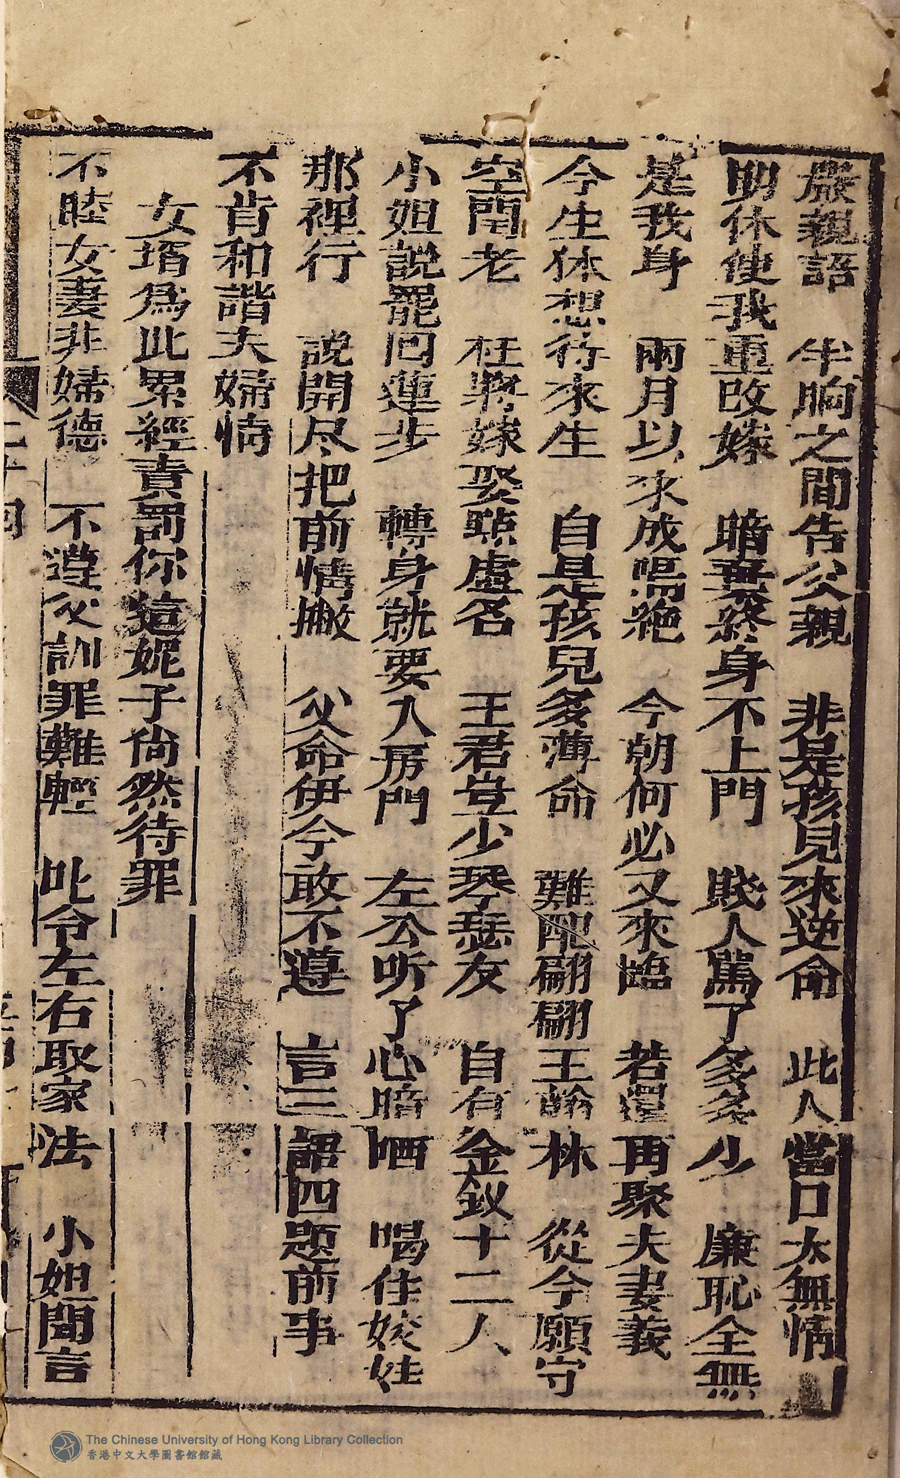 嚴親語　半晌之間告父親　非是孩兒來逆命　此人當日太無情
助休使我重改嫁　暗棄終身不上門　賤人罵了多多少　廉恥全無
是我身　兩月以來成隔絶　今朝何必又來臨　若還再聚夫妻義
今生休想待來生　自是孩兒多薄命　難配翩翩王翰林　從今願守
空閨老　枉將嫁娶點虛名　王君豈少琴瑟友　自有金釵十二人
小姐説罷回蓮步　轉身就要入房門　左公听了心暗哂　喝住姣娃
那裡行　説開尽把前情撇　父命伊今敢不遵　言三語四題前事
不肯和諧夫婦情
女壻爲此累經責罰你這妮子尙然待罪
不睦女妻非婦德　不遵父訓罪難輕　叱令左右取家法　小姐聞言
二十四
The Chinese University of Hong Kong Library Collection
香港中文大學圖書館館藏